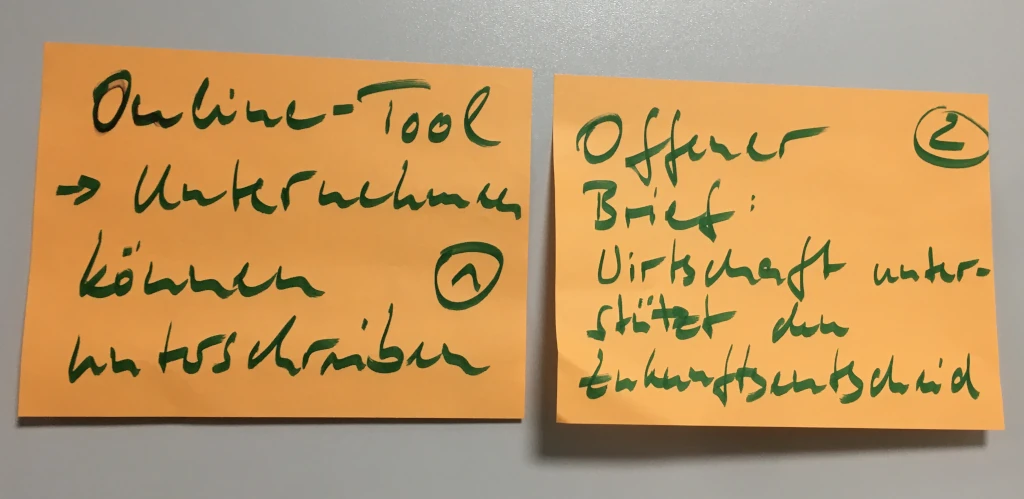 Online-Tool
→ Unternehmen
können
1
unterschreiben
Offener
2
Brief:
Wirtschaft unter-
stützt den
Zukunftsentscheid